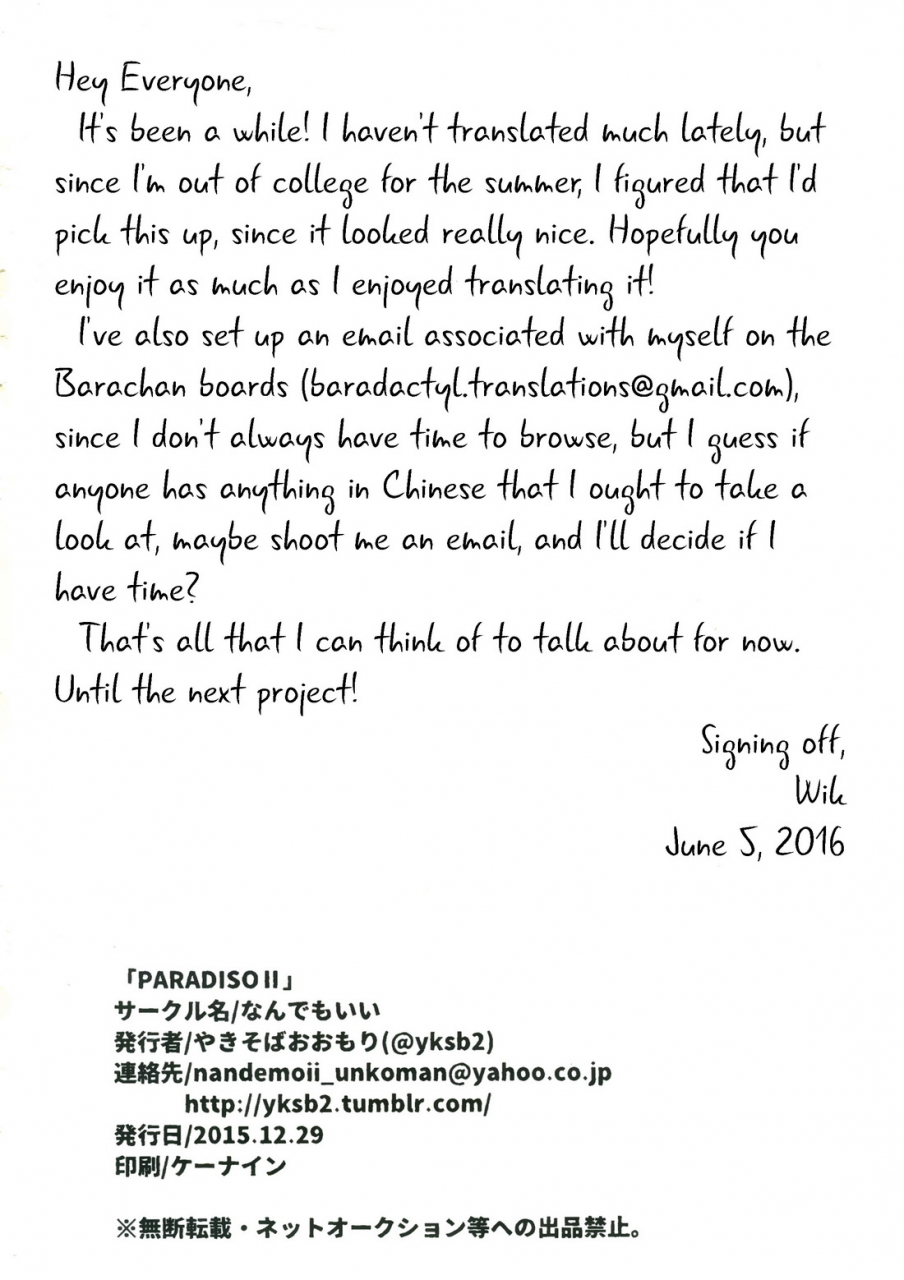 Hey Everyone,
It's been a while! I haven't translated much lately, but
since I'm out of college for the summer, I figured that I'd
pick this up, since it looked really nice. Hopefully you
enjoy it as much as I enjoyed translating it!
I've also set up an email associated with myself on the
Barachan boards (baradactyl.translations@gmail.com),
since I don't always have time to browse, but I guess if
anyone has anything in Chinese that I ought to take a
look at, maybe shoot me an email, and I'll decide if I
have time?
That's all that I can think of to talk about for now.
Until the next project!
Signing off,
Wik
June 5, 2016
「PARADISO II」
サークル名/なんでもいい
発行者/やきそばおおもり(@yksb2)
連絡先/nandemoii_unkoman@yahoo.co.jp
http://yksb2.tumblr.com/
発行日/2015.12.29
印刷/ケーナイン
※無断転載・ネットオークション等への出品禁止。